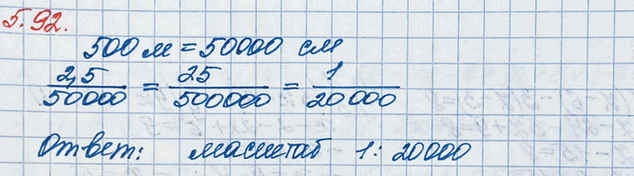 5.92.
500 м = 50000 см
2,5/50000 = 25/500000 = 1/20000
Ответ: масштаб 1:20000